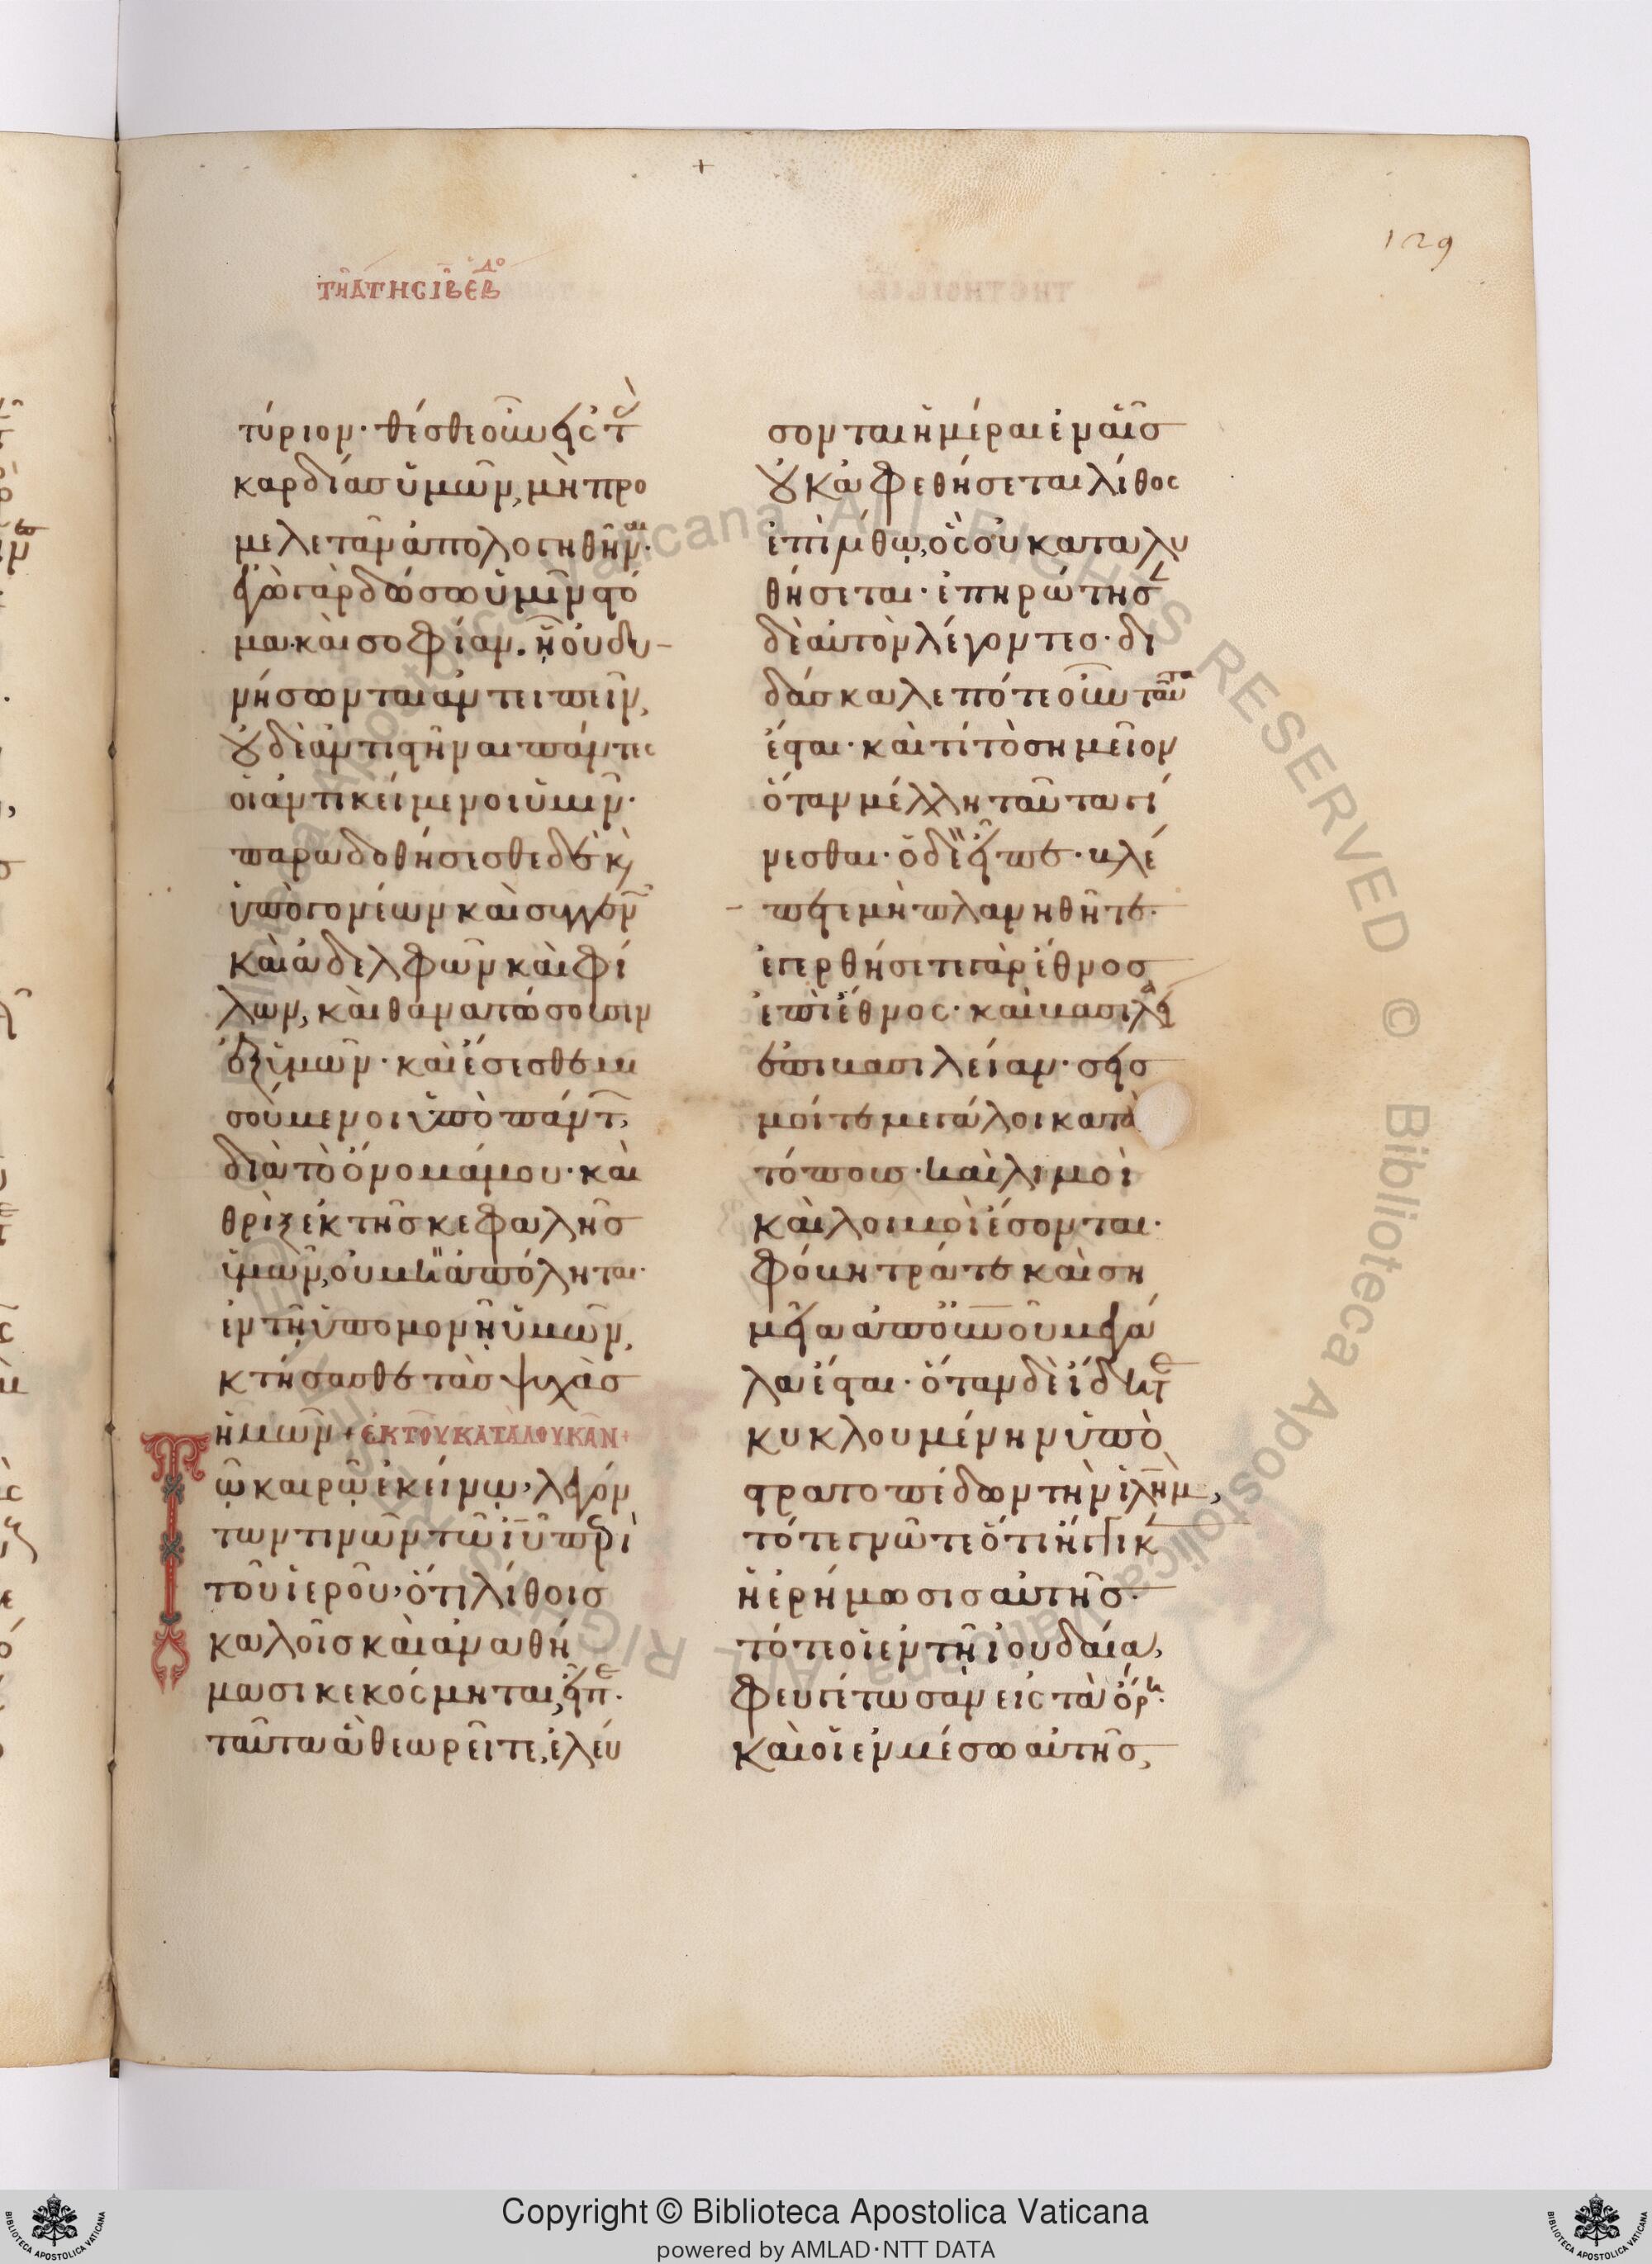 129
τῇ δ τῆς ιβ ἑβδο
τύριον· θέσθε οὖν εἰς τ
καρδίας ὑμῶν, μὴ προ
μελετᾶν ἀπολογηθῆναι·
ἐγὼ γὰρ δώσω ὑμῖν στό
μα καὶ σοφίαν. ᾗ οὐ δυ-
νήσωνται ἀντειπεῖν,
οὐδὲ ἀντιστῆναι πάντες
οἱ ἀντικείμενοι ὑμῖν·
παραδοθήσεσθε δὲ κ
ὑπὸ γονέων καὶ συγγεν
καὶ ἀδελφῶν καὶ φί
λων, καὶ θανατώσουσιν
ἐξ ὑμῶν· καὶ ἔσεσθε μι
σούμενοι ὑπὸ πάντ
διὰ τὸ ὄνομά μου· καὶ
θρὶξ ἐκ τῆς κεφαλῆς
ὑμῶν, οὐ μὴ ἀπόληται·
ἐν τῇ ὑπομονῇ ὑμῶν,
κτήσασθε τὰς ψυχὰς
ὑμῶν + ἐκ τοῦ κατὰ λουκᾶν +
Τῷ καιρῷ ἐκείνῳ, λεγόν
των τινῶν τῶ ιυ περὶ
τοῦ ἱεροῦ, ὅτι λίθοις
καλοῖς καὶ ἀναθή
μασι κεκόσμηται, εἶπε·
ταῦτα ἃ θεωρεῖτε, ἐλεύ
σονται ἡμέραι ἐν αἷς
οὐκ ἀφεθήσεται λίθος
ἐπὶ λίθῳ, ὃς οὐ καταλυ
θήσεται· ἐπηρώτησ
δὲ αὐτὸν λέγοντες· δι
δάσκαλε πότε οὖν ταῦτα
ἔσται· καὶ τί τὸ σημεῖον
ὅταν μέλλῃ ταῦτα γί
νεσθαι· ὁ δὲ εἶπε· βλέ
πετε μὴ πλανηθῆτε·
ἐγερθήσεται γὰρ ἔθνος
ἐπὶ ἔθνος· καὶ βασιλεία
ἐπὶ βασιλείαν· σεισ
μοί τε μεγάλοι κατὰ
τόπους· καὶ λιμοὶ
καὶ λοιμοὶ ἔσονται·
φόβητρά τε καὶ ση
μεῖα ἀπὸ οὐνοῦ μεγά
λα ἔσται· ὅταν δὲ ἴδητε
κυκλουμένην ὑπὸ
στρατοπέδων τὴν ιλημ,
τότε γνῶτε ὅτι ἤγγικ
ἡ ἐρήμωσις αὐτῆς·
τότε οἱ ἐν τῇ ἰουδαία,
φευγέτωσαν εἰς τὰ ὄρη·
καὶ οἱ ἐν μέσω αὐτῆς,
Copyright © Biblioteca Apostolica Vaticana
powered by AMLAD·NTT DATA